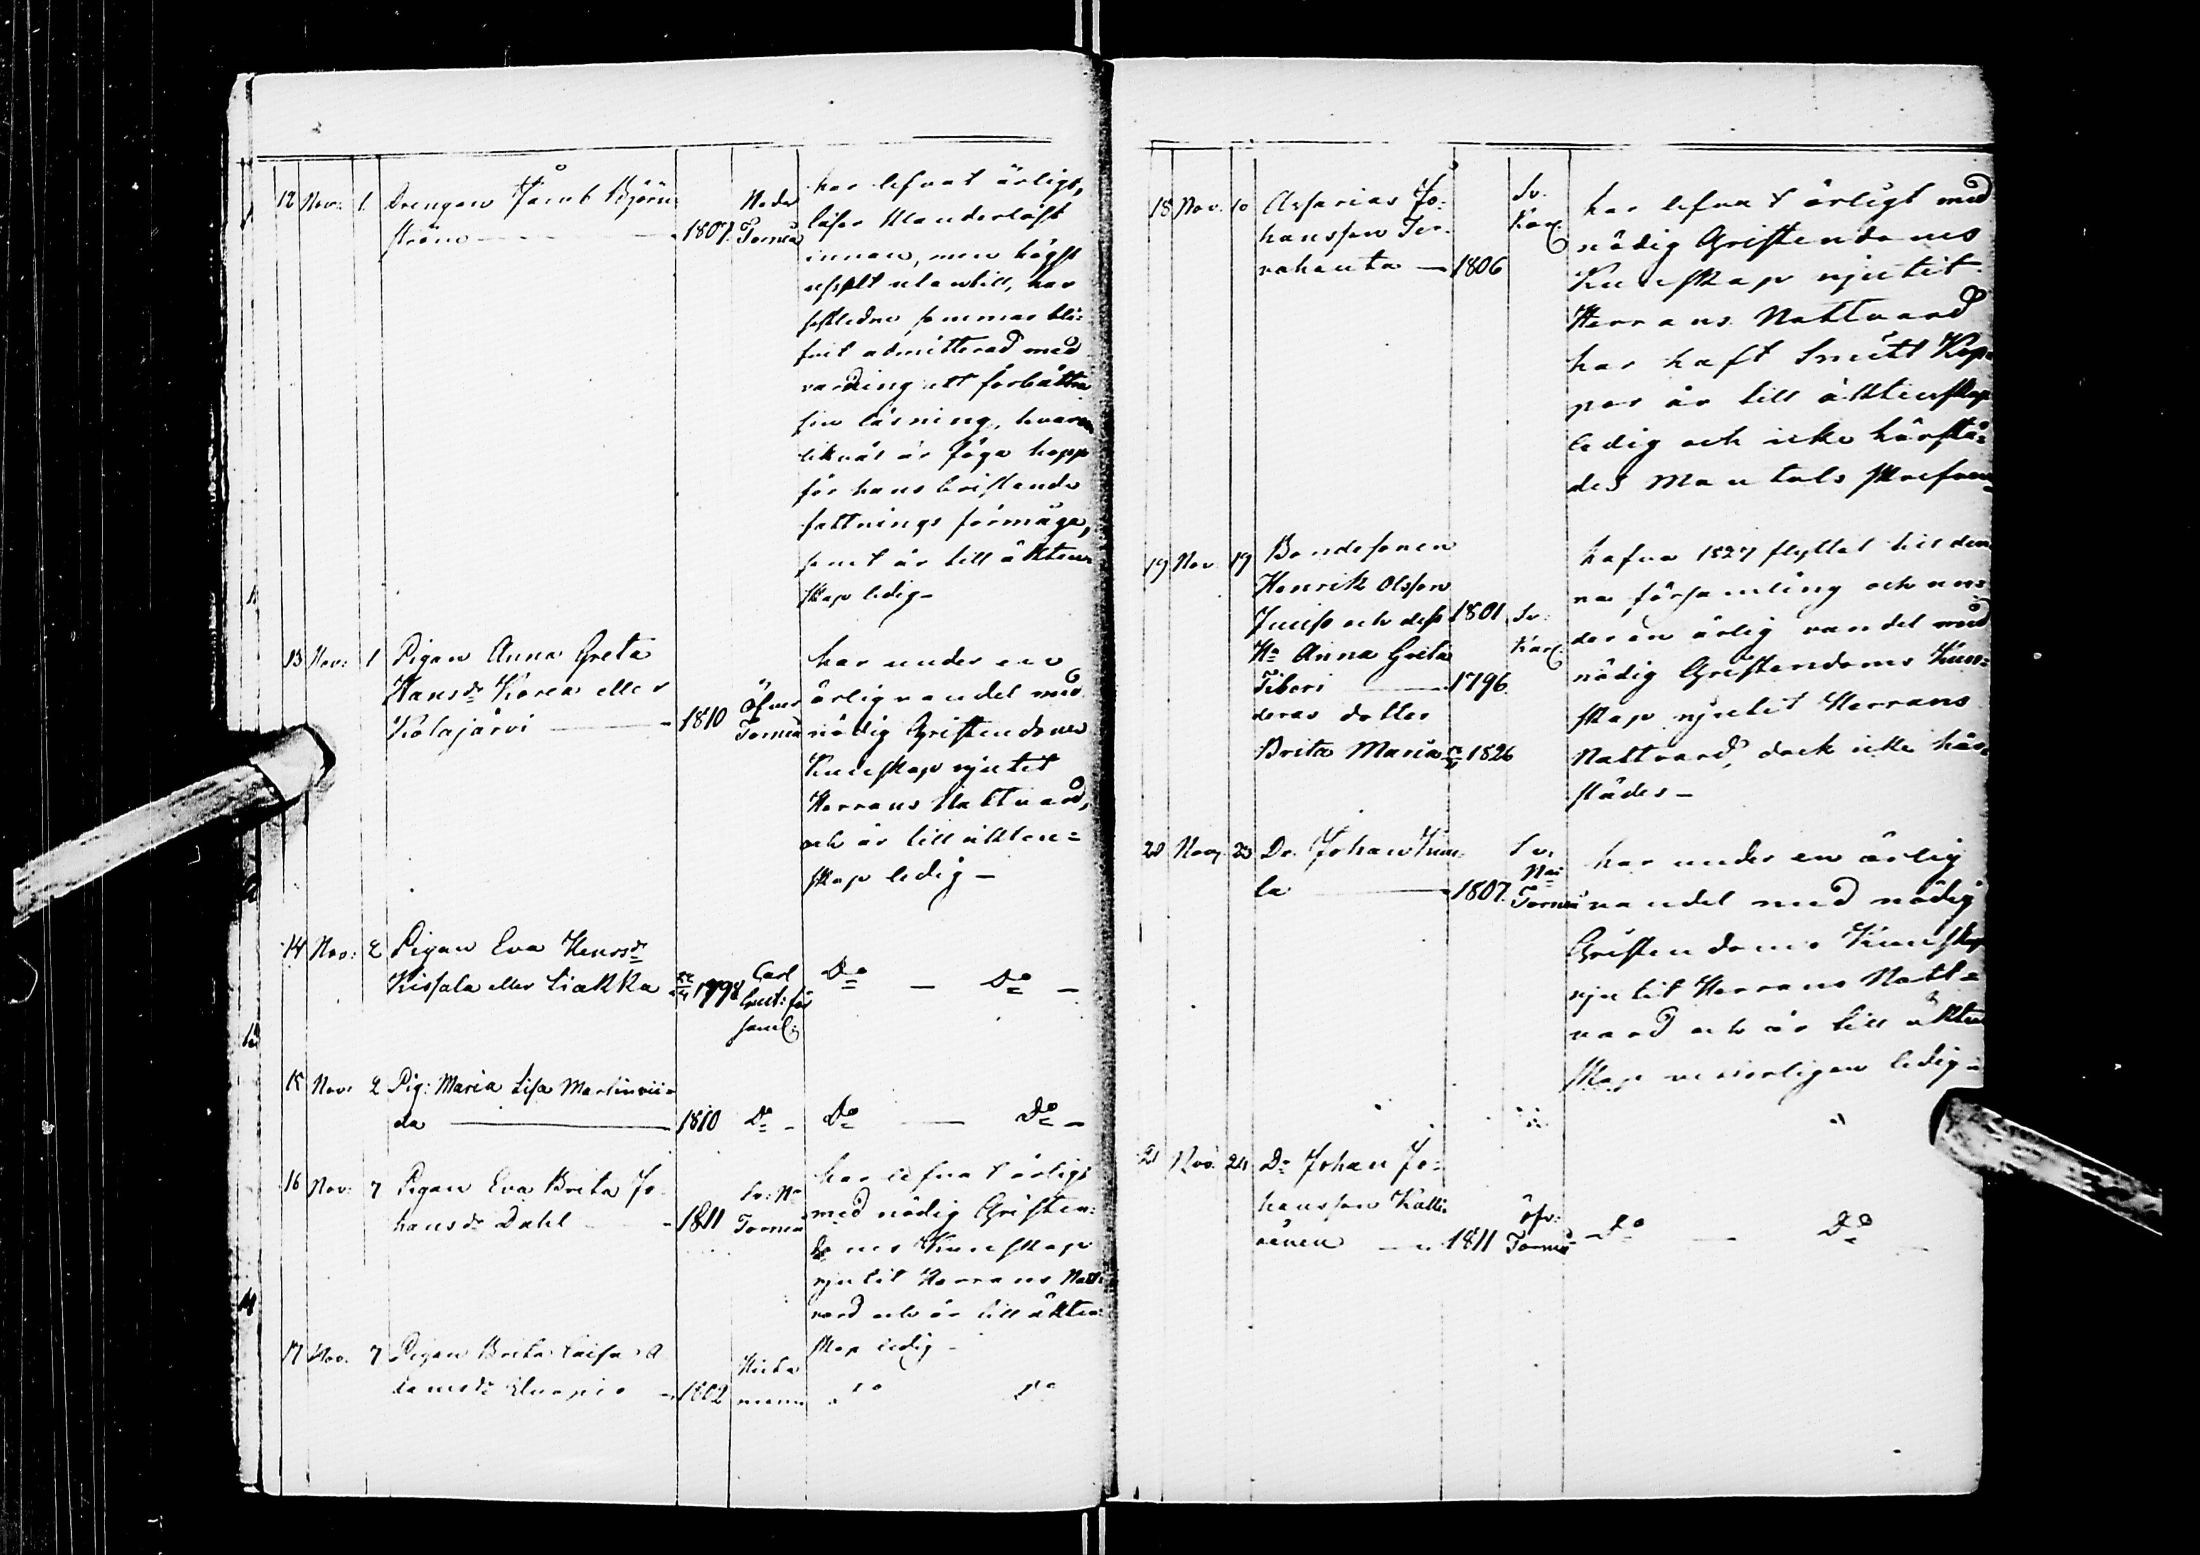 12 Nov: 1. Drengen Jacob Björn
ström 1807. Neder Torneå
har lefvat ärligt,
läser Manderlöst
innan, men högst
uselt utantill, har
sistledne sommar bli-
fvit admitterad med
varning att förbättra
sin läsning, hvar
likväl är föga hopp
för hans bristande
fattnings förmåga,
samt är till äkten-
skap ledig -
13 Nov: 1 Pigan Anna Greta
Hansdr Korea eller
Kolajärvi 1810 Öfver Torneå
har under en
ärlig vandel med
nödig Christendoms
Kunskap njutet
Herrans Nattvard,
och är till äkten=
skap ledig -
14 Nov: 2 Pigan Eva Henrsdr
Kissala eller Liakka 1798 Carl
Gust: för
saml:
Do - Do -
15 Nov: 2 Pig: Maria Lisa Martinvii-
da 1810 Do - Do - Do -
16 Nov: 7 Pigan Eva Brita Jo-
hansdr Dahl 1811 Sv: Nr Torneå
har lefvat ärligt
med nödig Christen-
doms Kunskap
njutit Herrans Natt
vard och är till äkten-
skap ledig -
17 Nov. 7 Pigan Brita Caisa A
damsdr 1802 Hieta
niemi Do Do
18 Nov. 10 Assarias Jo-
hansson Ter-
vahauta - 1806 Sv.
Karl:
har lefvat ärligt med
nödig Christendoms
Kunskap njutit
Herrans Nattvard
har haft Smått Kop-
por är till äktenskap
ledig och icke härstä-
des Mantals skrefven
19 Nov. 19 Bondesonen
Henrik Olsson
Juuso och dess 1801 Sv.
Hu Anna Greta Karl:
Fiberi 1796
deras dotter
Brita Maria 1826
hafva 1827 flyttat hit den
na församling och un-
der en ärlig vandel med
nödig Christendoms Kun-
skap njutit Herrans
Nattvard, dock icke här-
städes -
20 Nov. 23 Dr. Johan
la 1807. Sv.
Nr
Torneå
har under en ärlig
vandel med nödig
Christendoms Kunskap
njutit Herrans Natt=
vard och är till äkten
skap veterligen ledig -
21 Nov. 24 Dr Johan Jo-
hansson Kalli-
oinen 1811 Öfv:
Torneå Do - Do